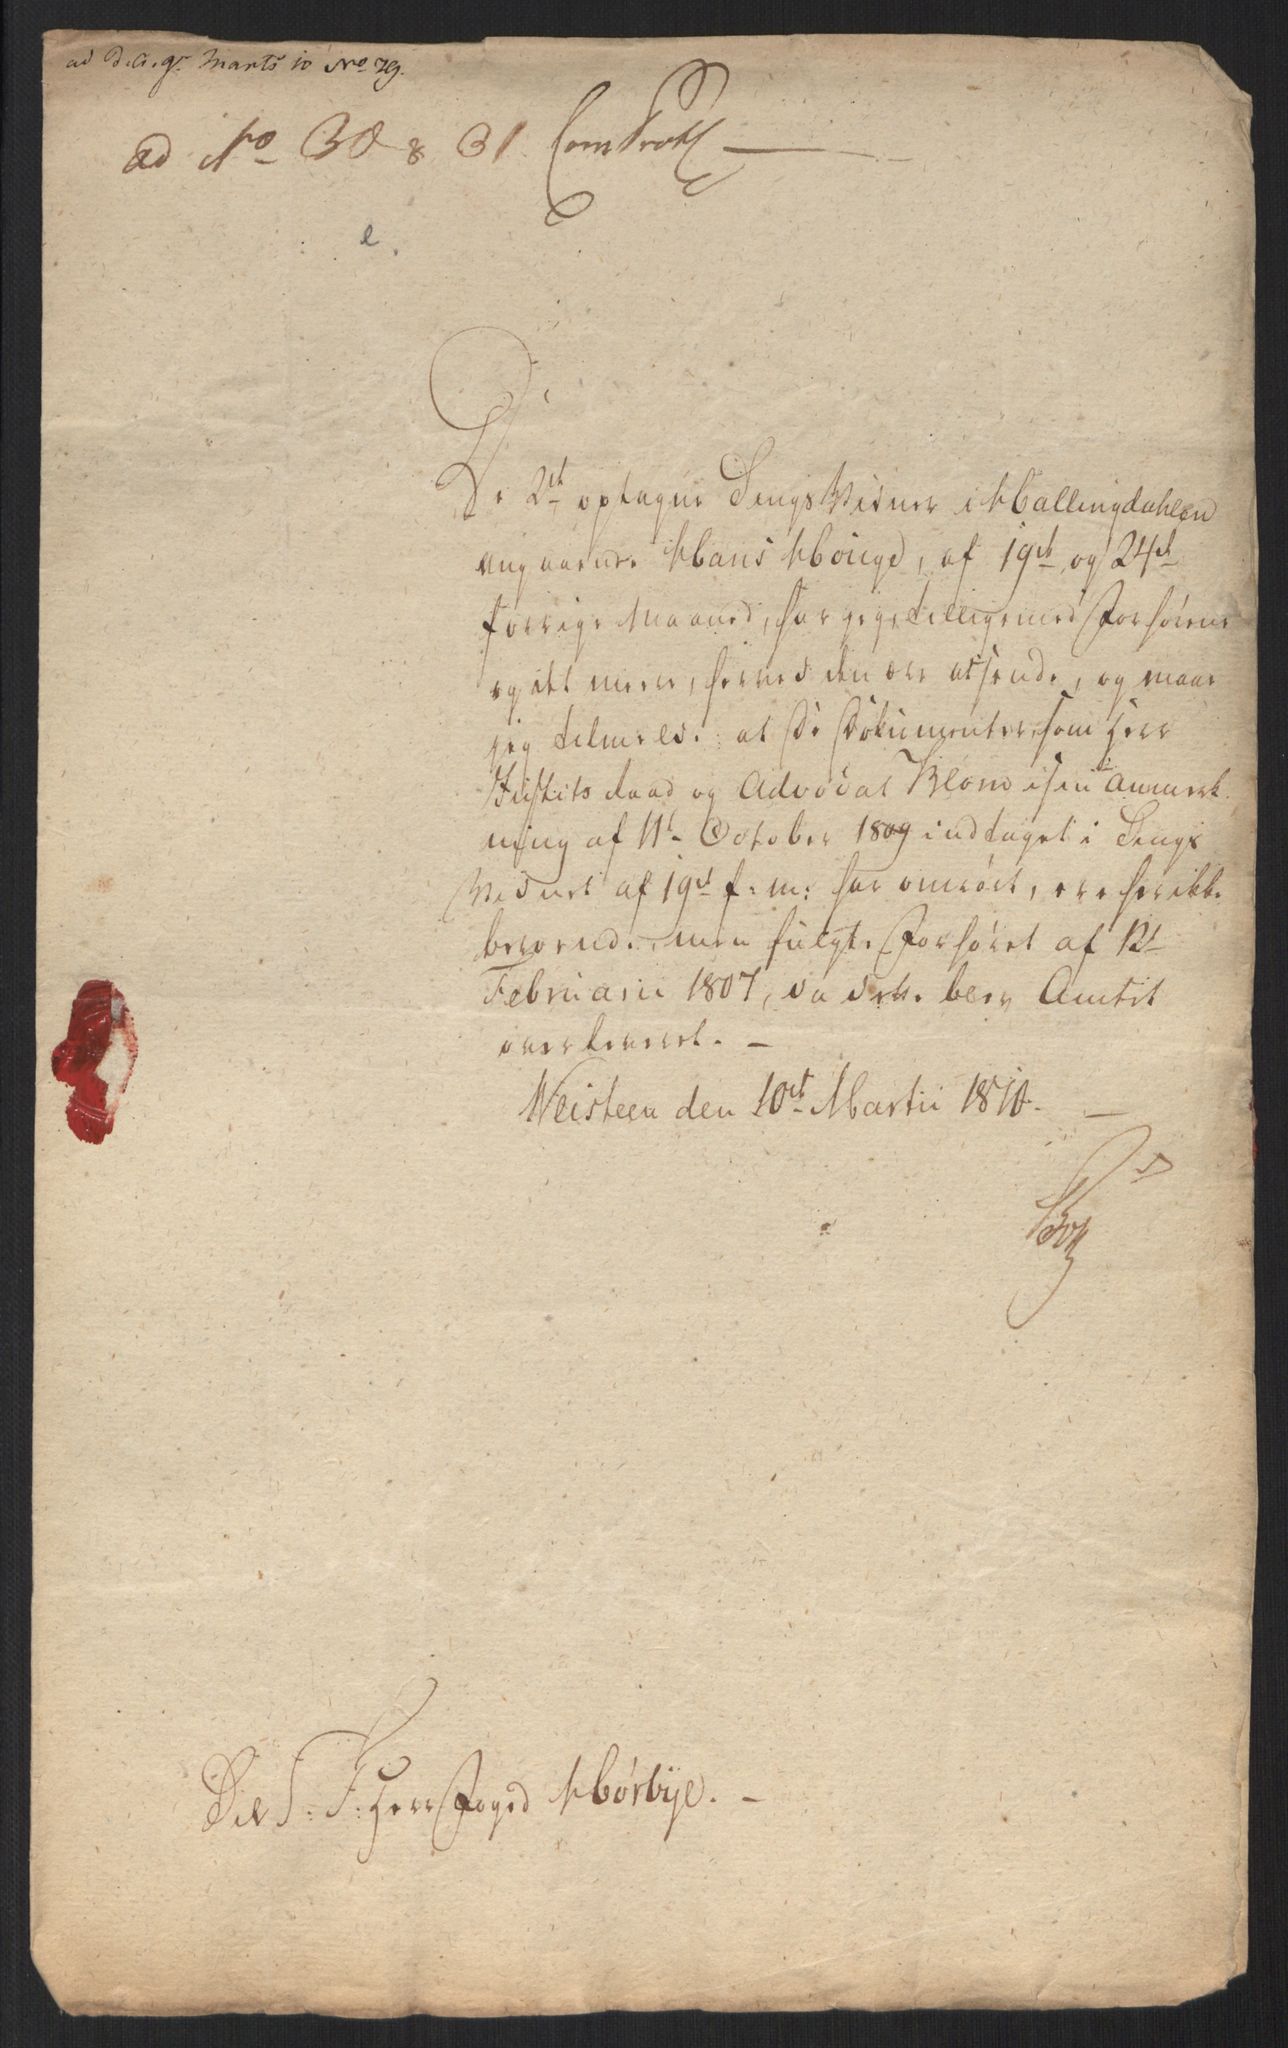 ad D. C. 9r Marts 10 No 79.
ad No 30 & 31 Com Protk
e.
De 2de optagne Tings Vidner i Hallingdahlen
angaaende Hans Houge, af 19de og 24de
forrige Maaned, har jeg, tilligemed Forhørene
og et meere, herved den ære at sende, og maae
jeg tilmelde: at de Dokumenter, som Herr
Justits Raad og Advocat Blom i sin Anmerk-
ning af 11te October 1809 indtaget i Tings
Vidnet af 19de f: m: har omrørt, ere her ikke
beroende, men fulgte Forhøret af 12te
Februarii 1807, da dette blev Amtet
overleveret. –
Neisteen den 10de Martii 1810. –
Til S: T: Herr Foged Hørbye. –